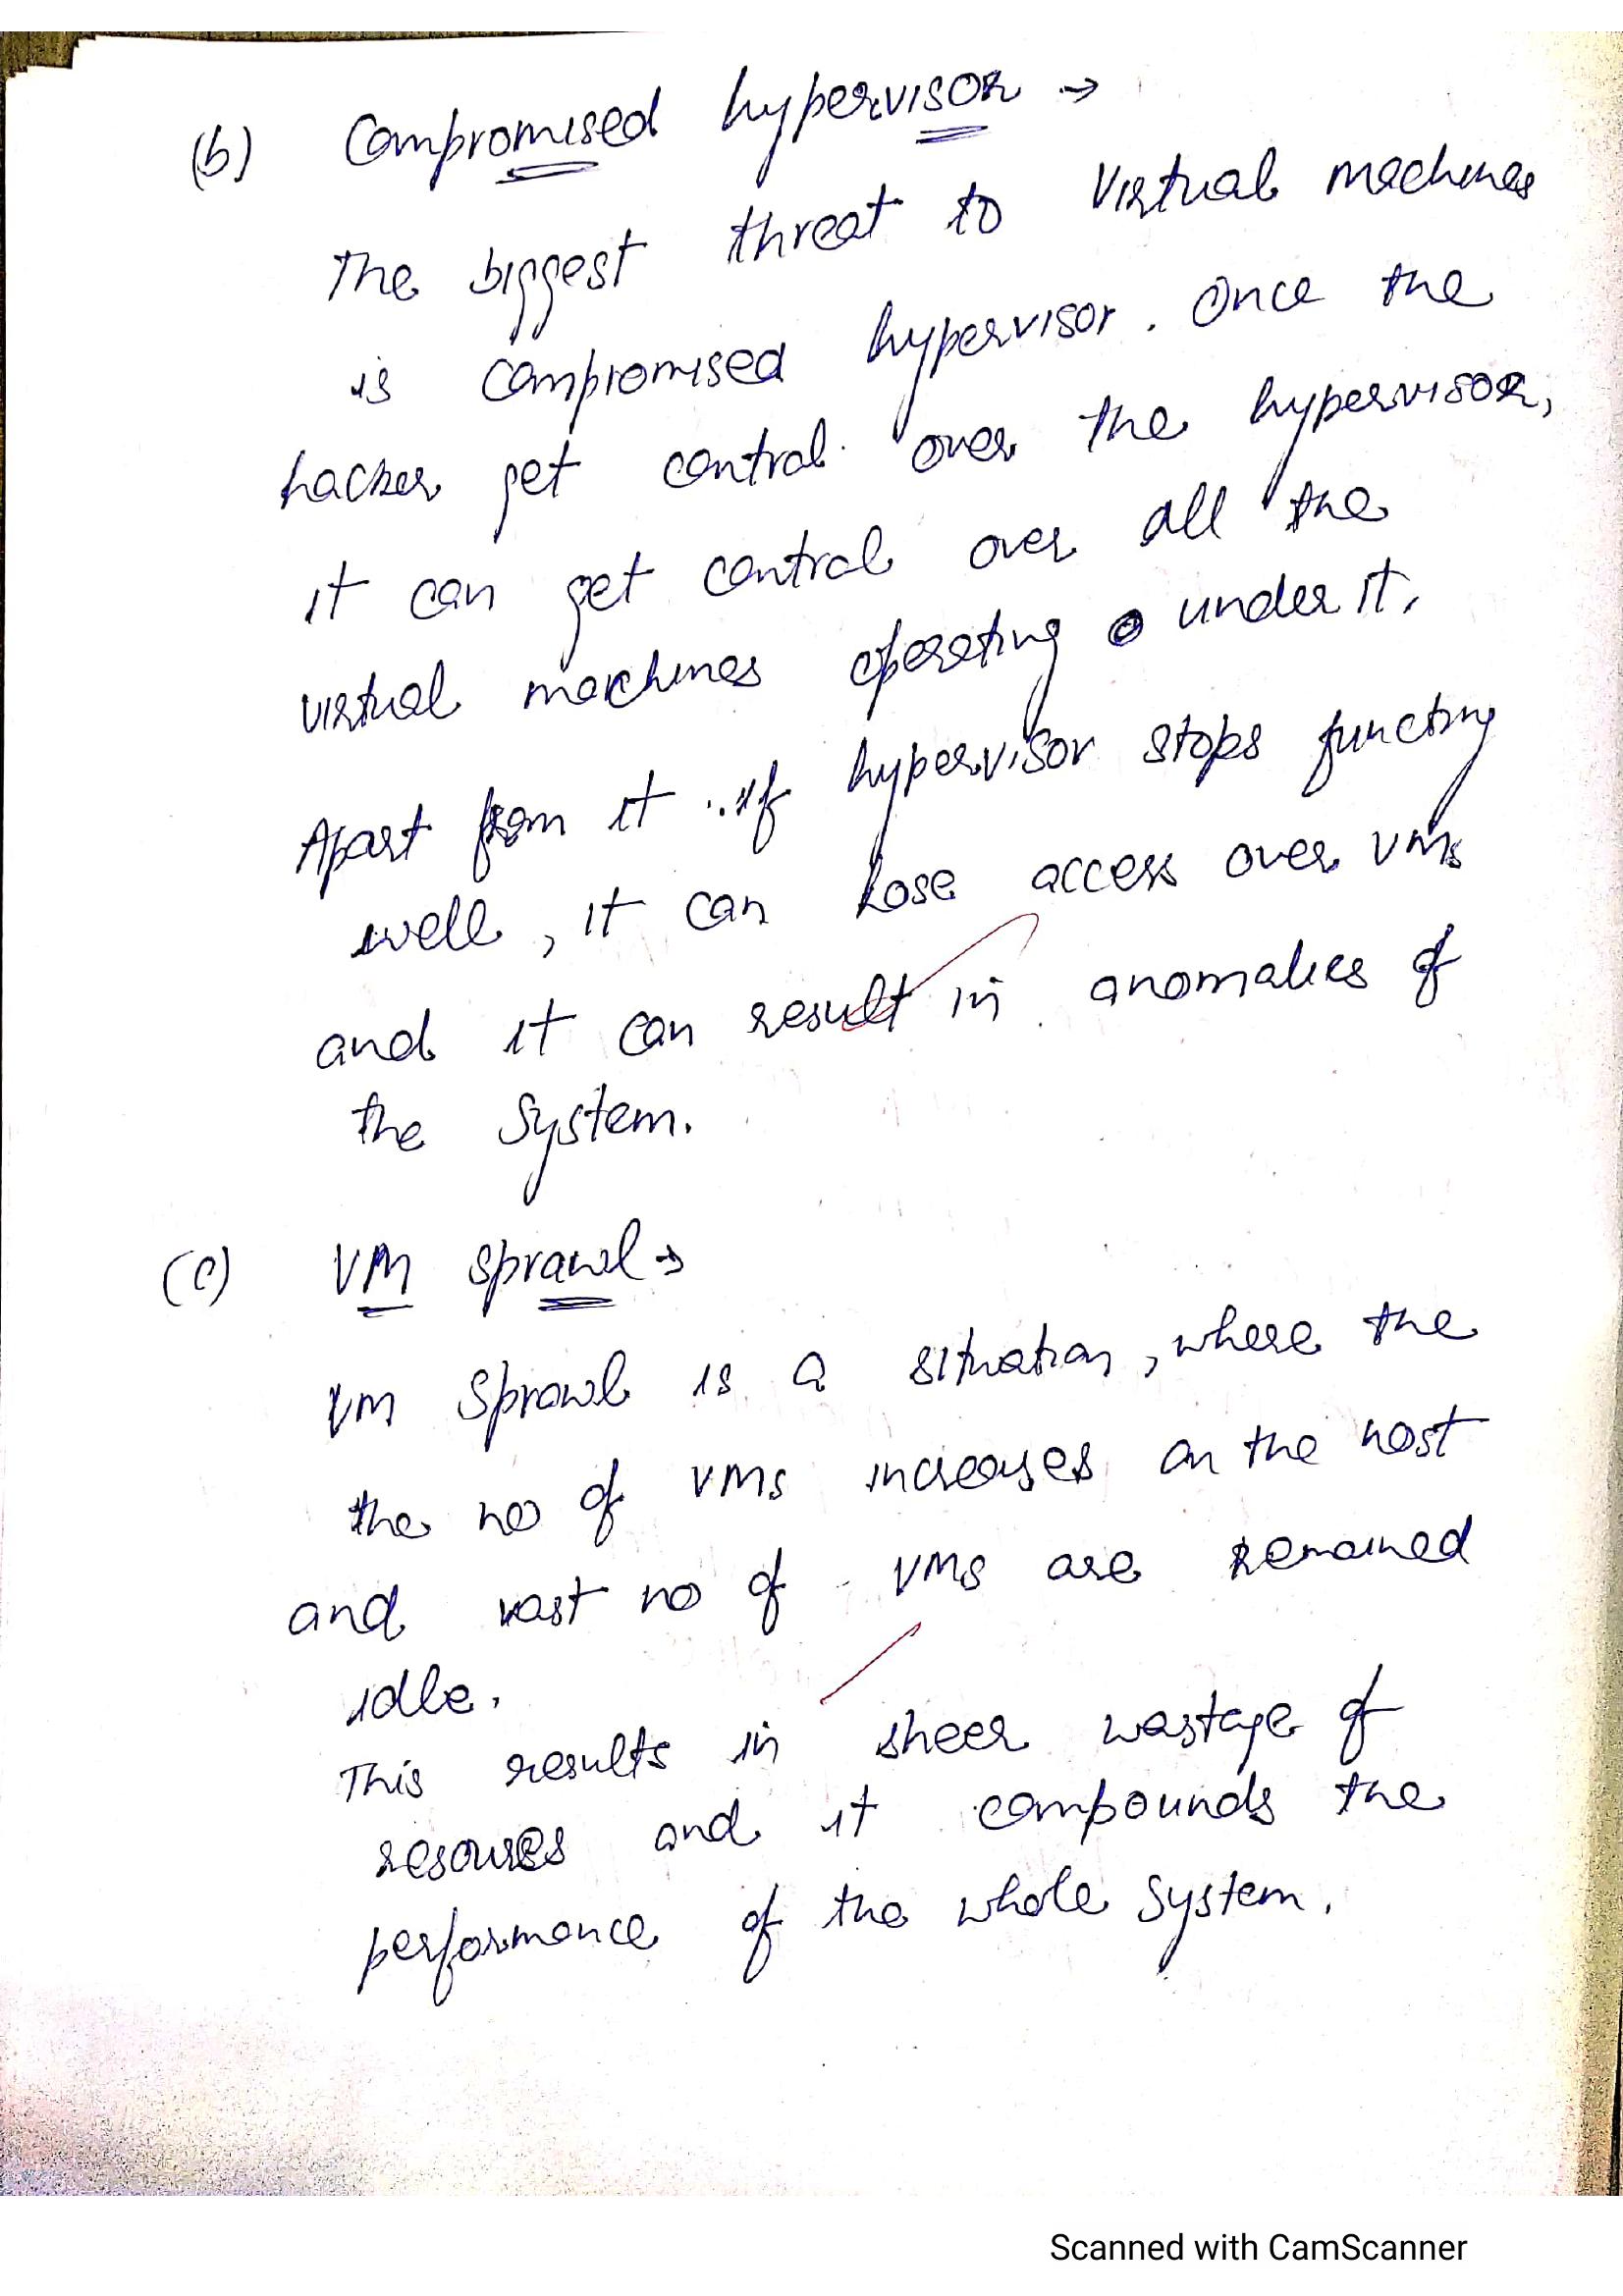 (b) Compromised hypervisor →
The biggest threat to Virtual machines
is compromised hypervisor. Once the
hacker get control over the hypervisor,
it can get control over all the
virtual machines operating under it.
Apart from it if hypervisor stops functing
well, it can lose access over VMs
and it can result in anomalies of
the System.
(c) VM sprawl →
VM Sprawl is a situation, where the
the no of VMs increases on the host
and vast no of VMs are remained
idle.
This results in sheer wastage of
resourses and it compounds the
performance of the whole System.
Scanned with CamScanner